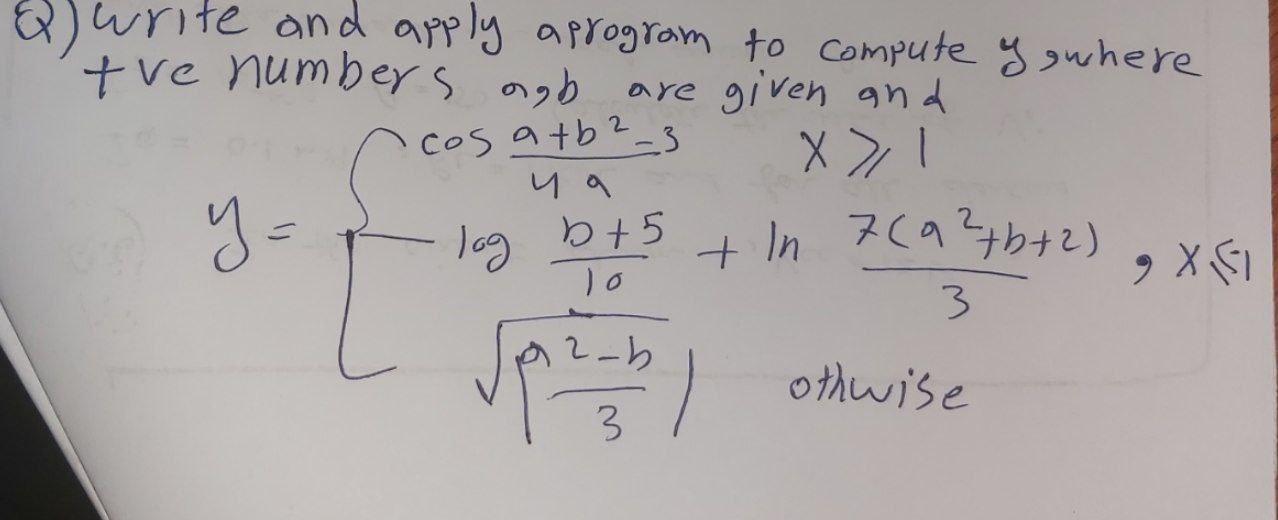 Q) write and apply a program to compute y, where
+ve numbers a,b are given and
y = { cos (a+b²-3)/(4a)    x ≥ 1
log (b+5)/10 + ln 7(a²+b+2)/3 , x ≤ -1
√|(a²-b)/3|    othwise